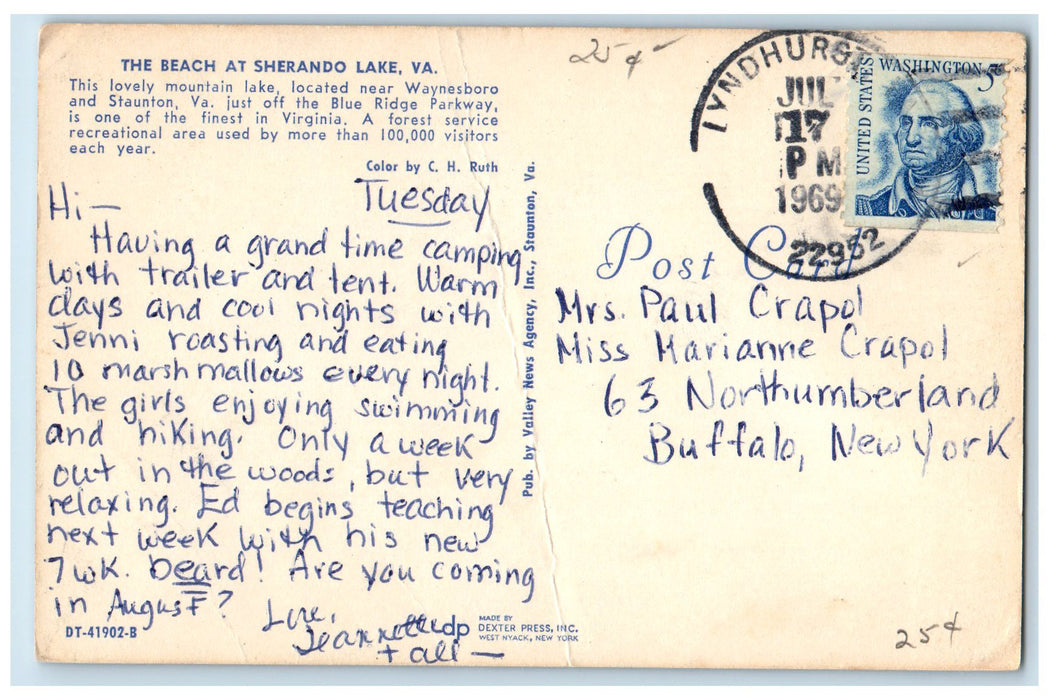 THE BEACH AT SHERANDO LAKE, VA.
This lovely mountain lake, located near Waynesboro
and Staunton, Va. just off the Blue Ridge Parkway,
is one of the finest in Virginia. A forest service
recreational area used by more than 100,000 visitors
each year.
Color by C. H. Ruth
Tuesday
Hi —
Having a grand time camping
with trailer and tent. Warm
days and cool nights with
Jenni roasting and eating
10 marshmallows every night.
The girls enjoying swimming
and hiking. Only a week
out in the woods, but very
relaxing. Ed begins teaching
next week with his new
7 wk. beard! Are you coming
in August?
Love,
Jeannette
+ all —
DT-41902-B
dp
MADE BY
DEXTER PRESS, INC.
WEST NYACK, NEW YORK
Pub. by Valley News Agency, Inc., Staunton, Va.
25¢
LYNDHURS
JUL
17
PM
1969
22952
UNITED STATES
WASHINGTON 5¢
Post Card
Mrs. Paul Crapol
Miss Marianne Crapol
63 Northumberland
Buffalo, New York
25¢